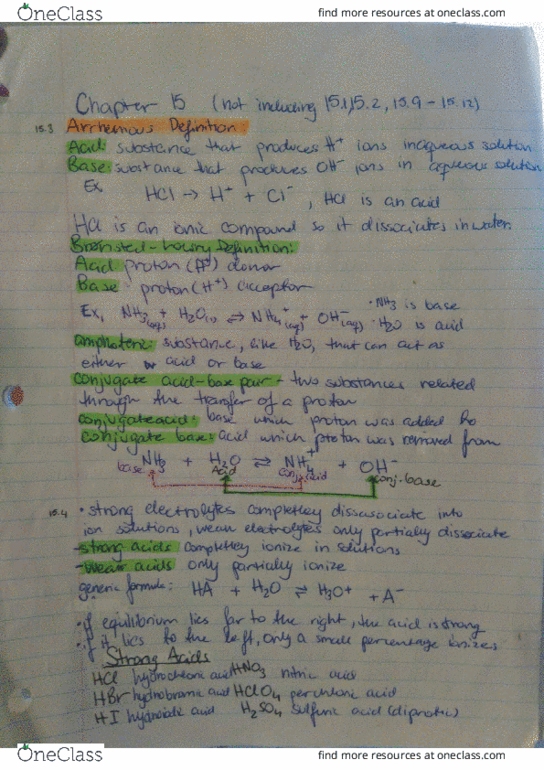 OneClass
find more resources at oneclass.com
Chapter 15 (not including 15.1, 15.2, 15.9 - 15.12)
15.3 Arrhenious Definition
Acid: substance that produces H⁺ ions in aqueous solution
Base: substance that produces OH⁻ ions in aqueous solution
Ex
HCl → H⁺ + Cl⁻, HCl is an acid
HCl is an ionic compound so it dissociates in water.
Bronsted-Lowry Definition:
Acid: proton (H⁺) donor
Base: proton (H⁺) acceptor
Ex. NH₃(aq) + H₂O(l) ⇌ NH₄⁺(aq) + OH⁻(aq) · NH₃ is base
· H₂O is acid
amphoteric: substance, like H₂O, that can act as
either acid or base
conjugate acid-base pair - two substances related
through the transfer of a proton
conjugate acid: base which proton was added to
conjugate base: acid which proton was removed from
NH₃ + H₂O ⇌ NH₄⁺ + OH⁻
base Acid conj. acid conj. base
15.4 · strong electrolytes completley dissasociate into
ion solutions, weak electrolytes only partially dissociate
- strong acids completley ionize in solutions
- weak acids only partially ionize
generic formula: HA + H₂O ⇌ H₃O⁺ + A⁻
· if equilibrium lies far to the right, the acid is strong
· if it lies to the left, only a small percentage ionizes
Strong Acids
HCl hydrochloric acid HNO₃ nitric acid
HBr hydrobromic acid HClO₄ perchloric acid
HI hydroiodic acid H₂SO₄ sulfuric acid (diprotic)
OneClass
find more resources at oneclass.com